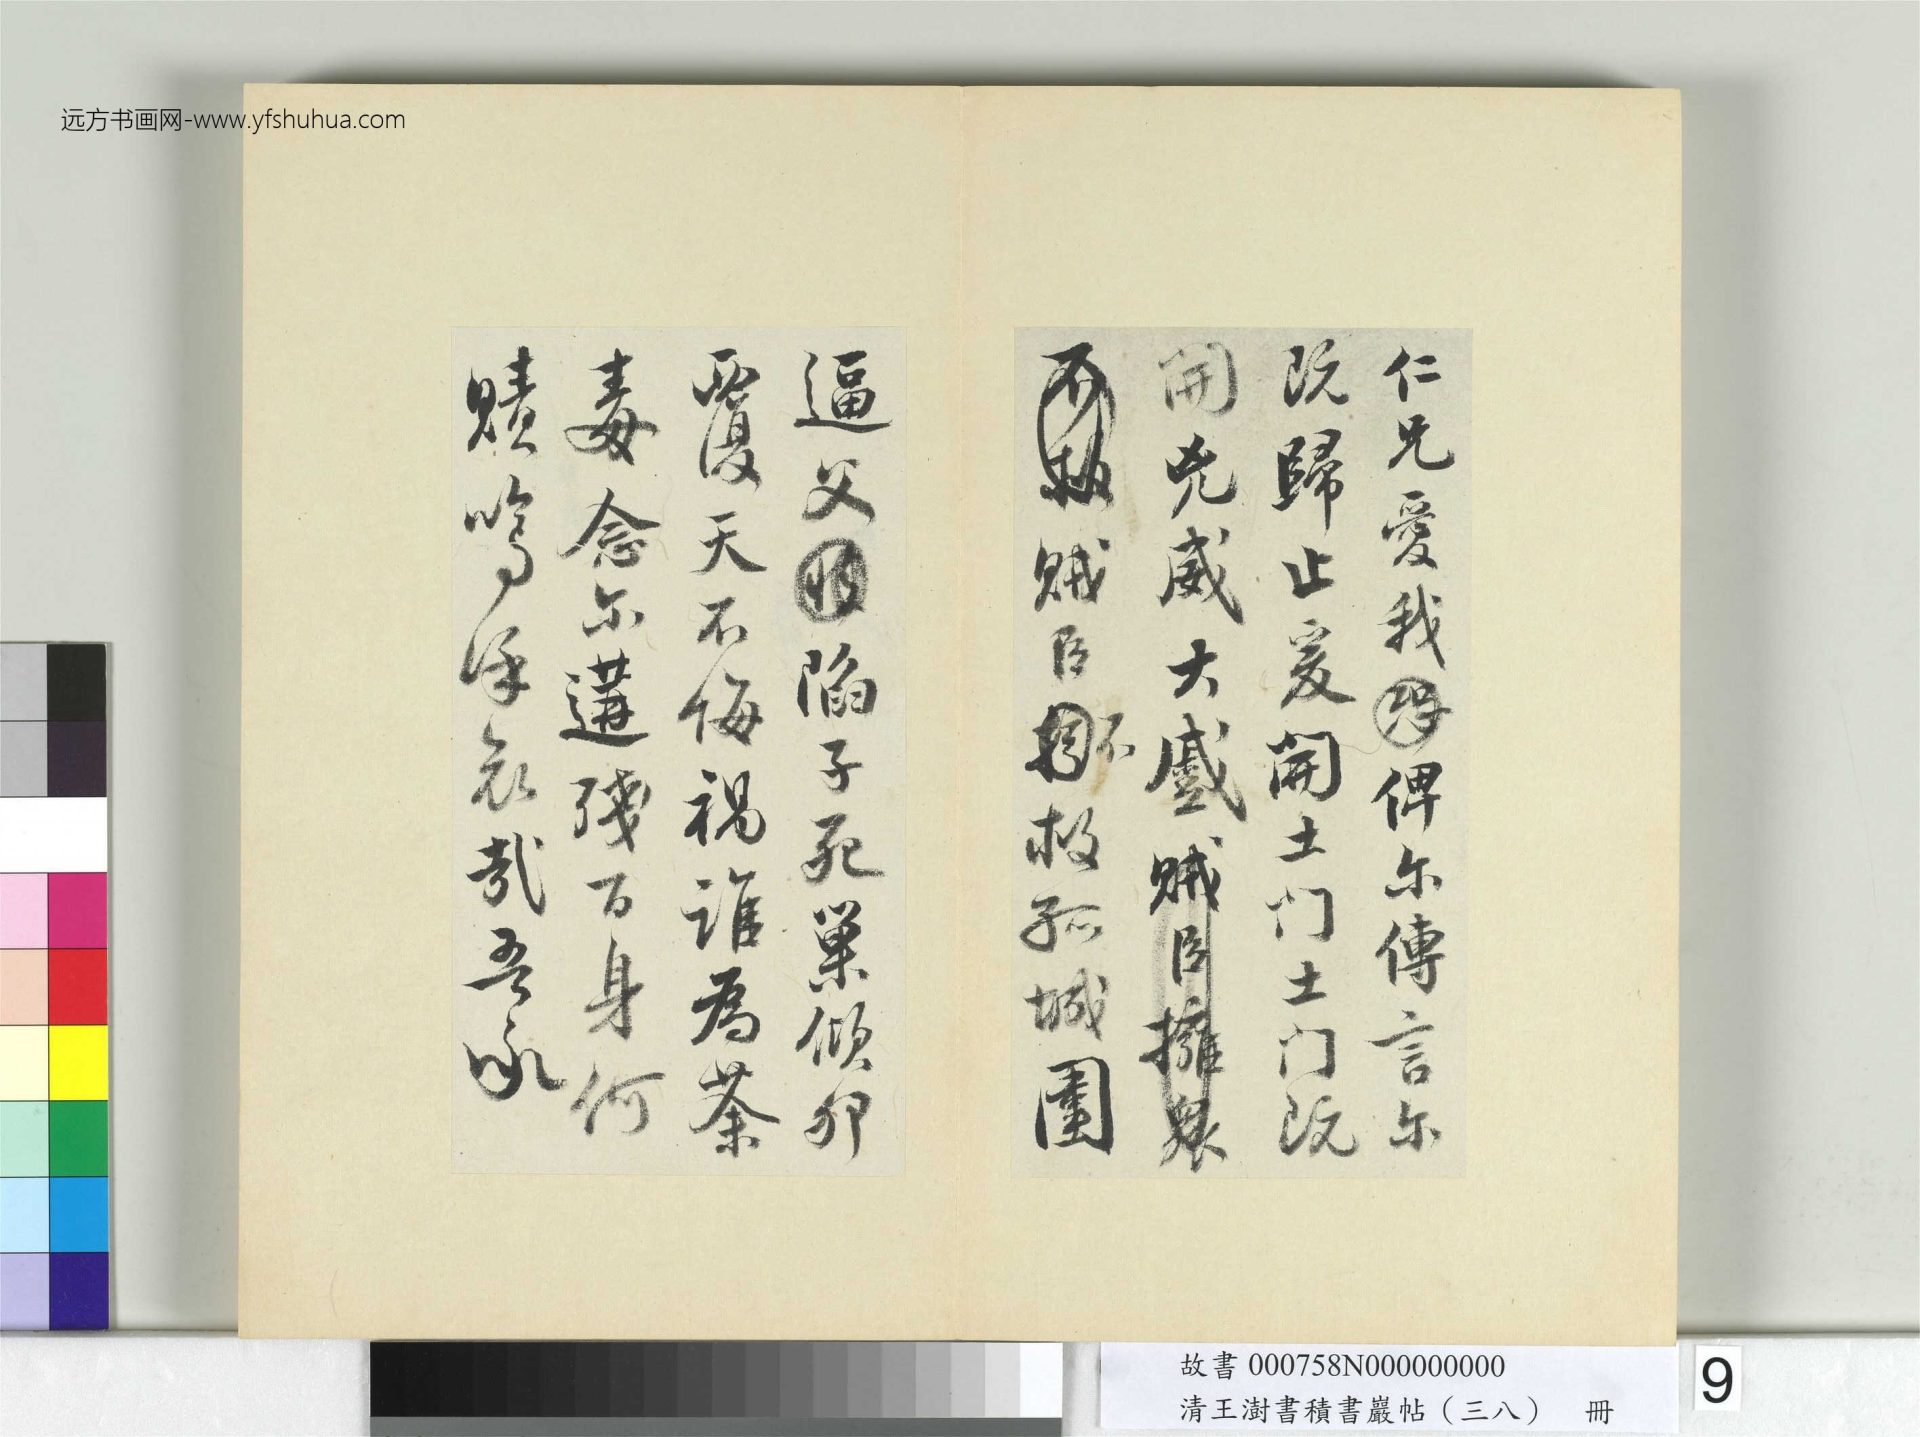 远方书画网-www.yfshuhua.com
仁兄愛我俾尔傳言尔
既歸止爰開土门土门既
開凶威大蹙賊臣擁衆
不救賊臣不救孤城圍
逼父陷子死巢傾卵
覆天不悔禍誰為荼
毒念尔遘殘百身何
贖嗚呼哀哉吾承
故書 000758N000000000
清王澍書積書巖帖（三八） 冊
9